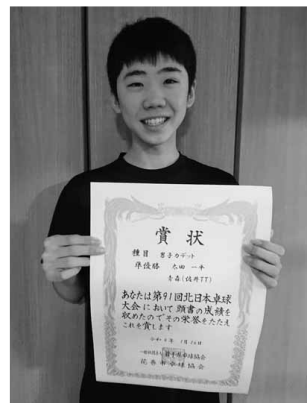 賞状
種目 男子カデット
準優勝 太田 一平
青森(佐井TT)
あなたは第91回北日本卓球
大会において頭書の成績を
収めたのでその栄誉をたたえ
これを賞します
一般社団法人岩手県卓球協会
花巻市卓球協会